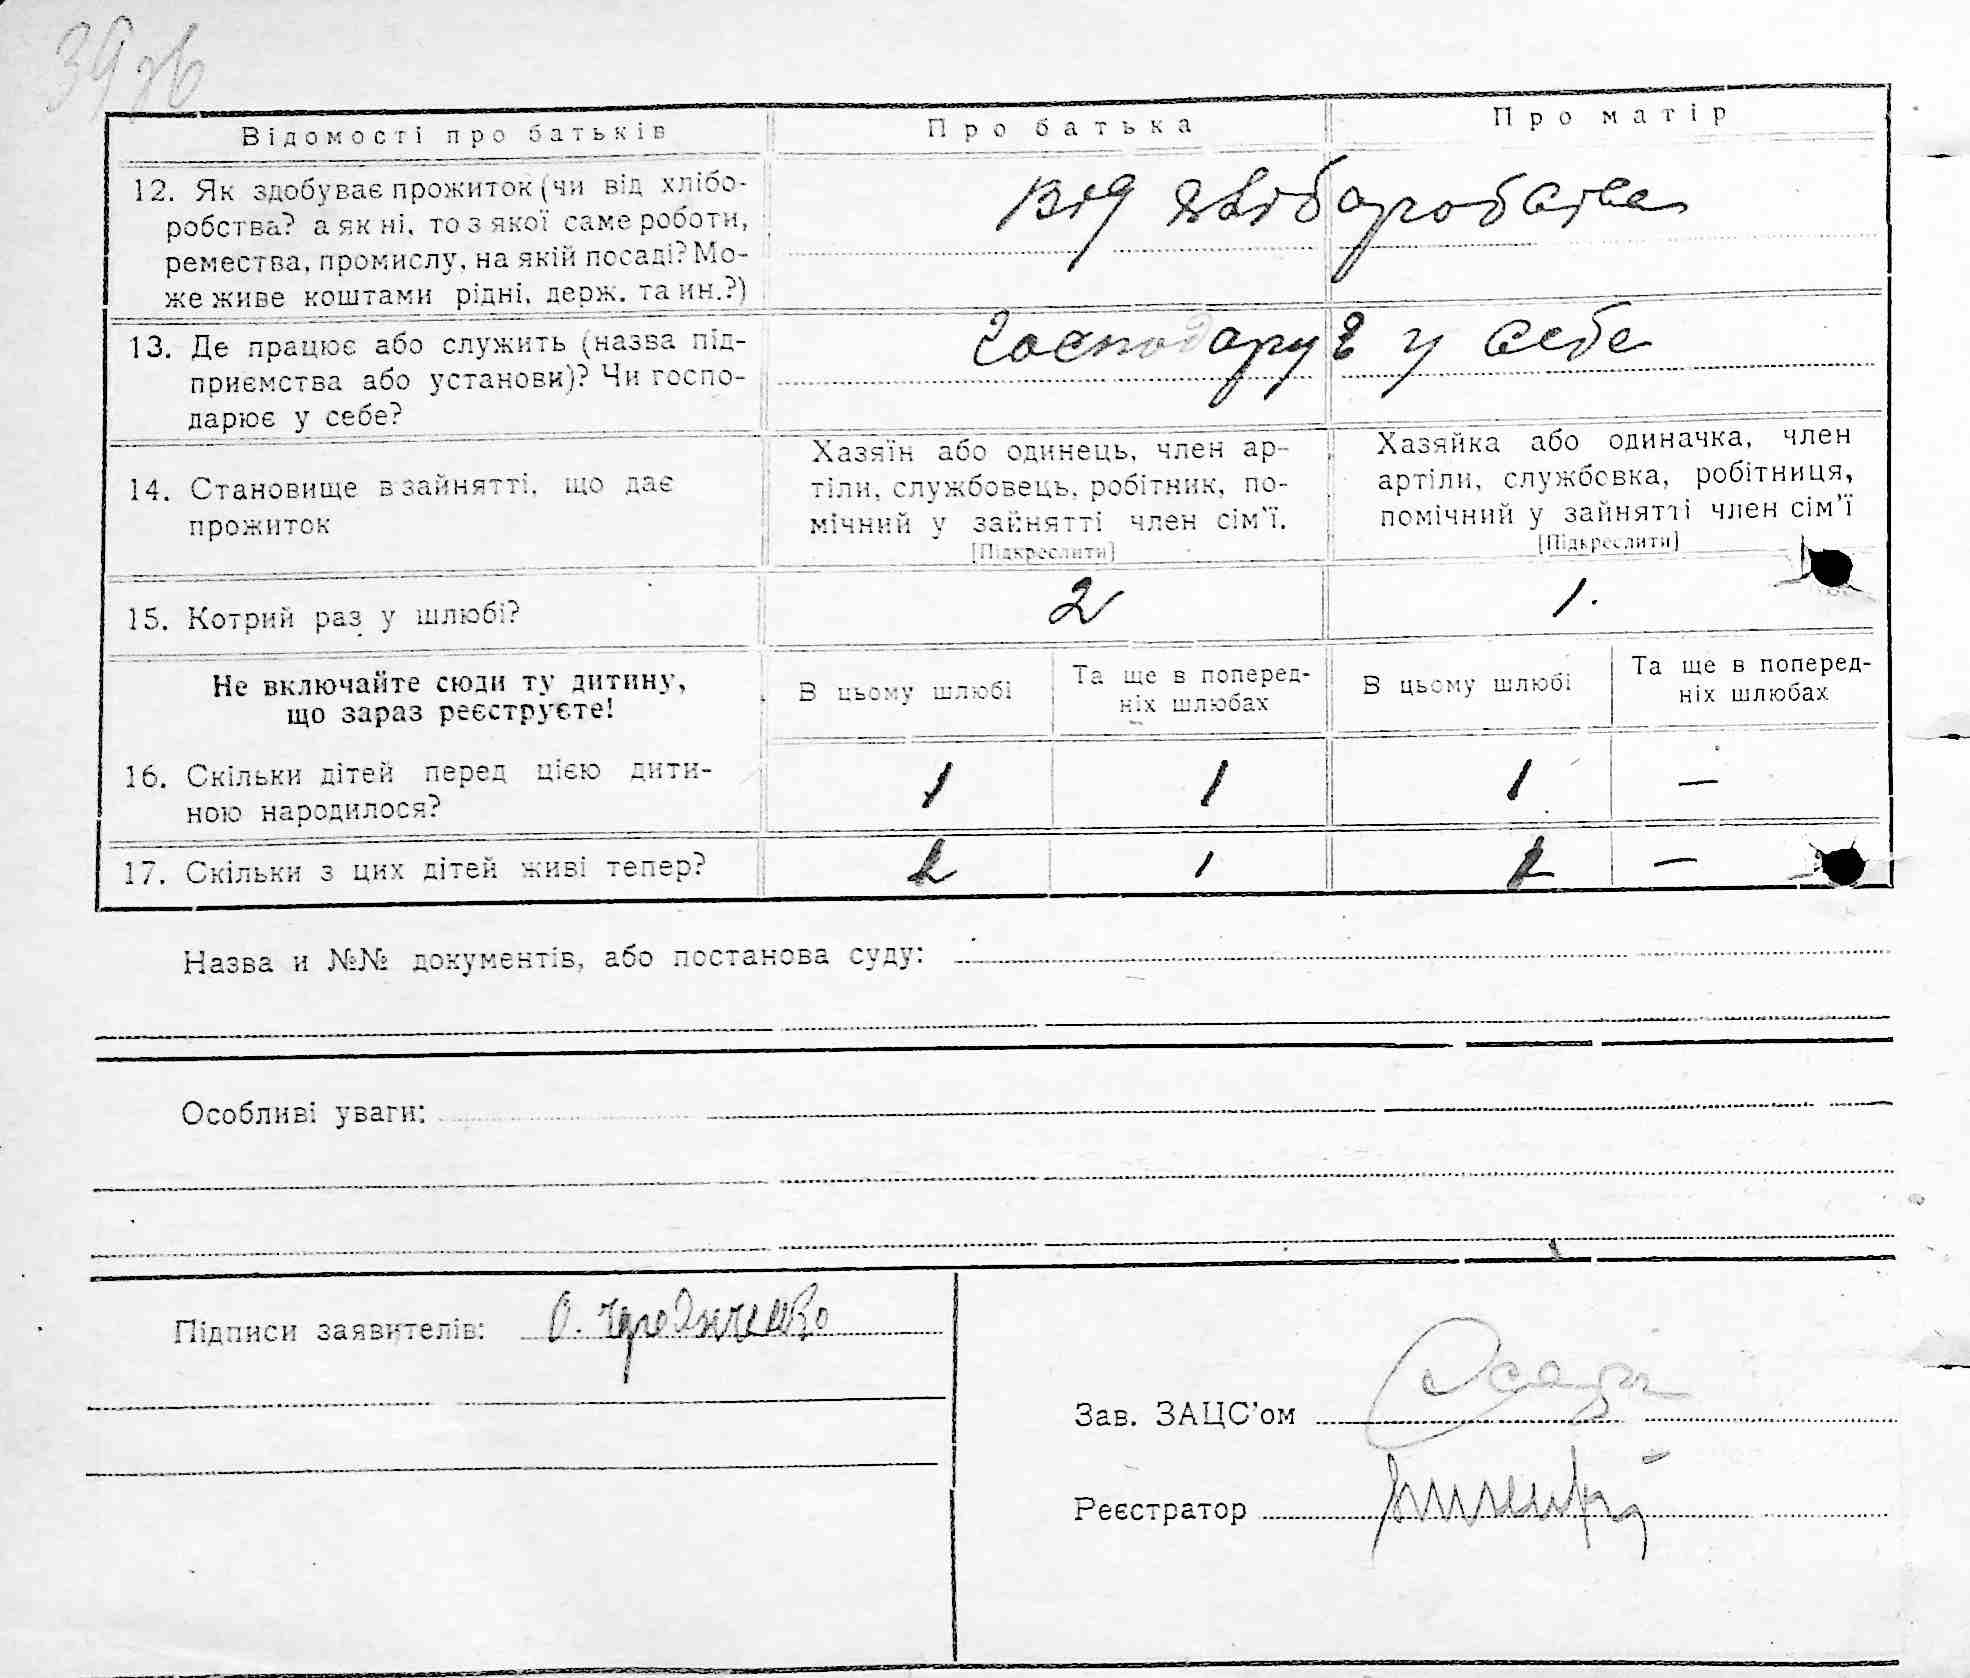 39 зв
Відомості про батьків
Про батька
Про матір
12. Як здобуває прожиток (чи від хлібо-
робства? а як ні, то з якої саме роботи,
ремества, промислу, на якій посаді? Мо-
же живе коштами рідні, держ. та ин.?)
від хліборобства
13. Де працює або служить (назва під-
приємства або установи)? Чи госпо-
дарює у себе?
Господарує у себе
14. Становище в зайнятті, що дає
прожиток
Хазяїн або одинець, член ар-
тіли, службовець, робітник, по-
мічний у зайнятті член сім'ї.
[Підкреслити]
Хазяйка або одиначка, член
артіли, службовка, робітниця,
помічний у зайнятті член сім'ї
[Підкреслити]
15. Котрий раз у шлюбі?
2
1.
Не включайте сюди ту дитину,
що зараз реєструєте!
В цьому шлюбі
Та ще в поперед-
ніх шлюбах
В цьому шлюбі
Та ще в поперед-
ніх шлюбах
16. Скільки дітей перед цією дити-
ною народилося?
1
1
1
—
17. Скільки з цих дітей живі тепер?
1
—
Назва и №№ документів, або постанова суду:
Особливі уваги:
Підписи заявителів: О.
Зав. ЗАЦС'ом
Реєстратор